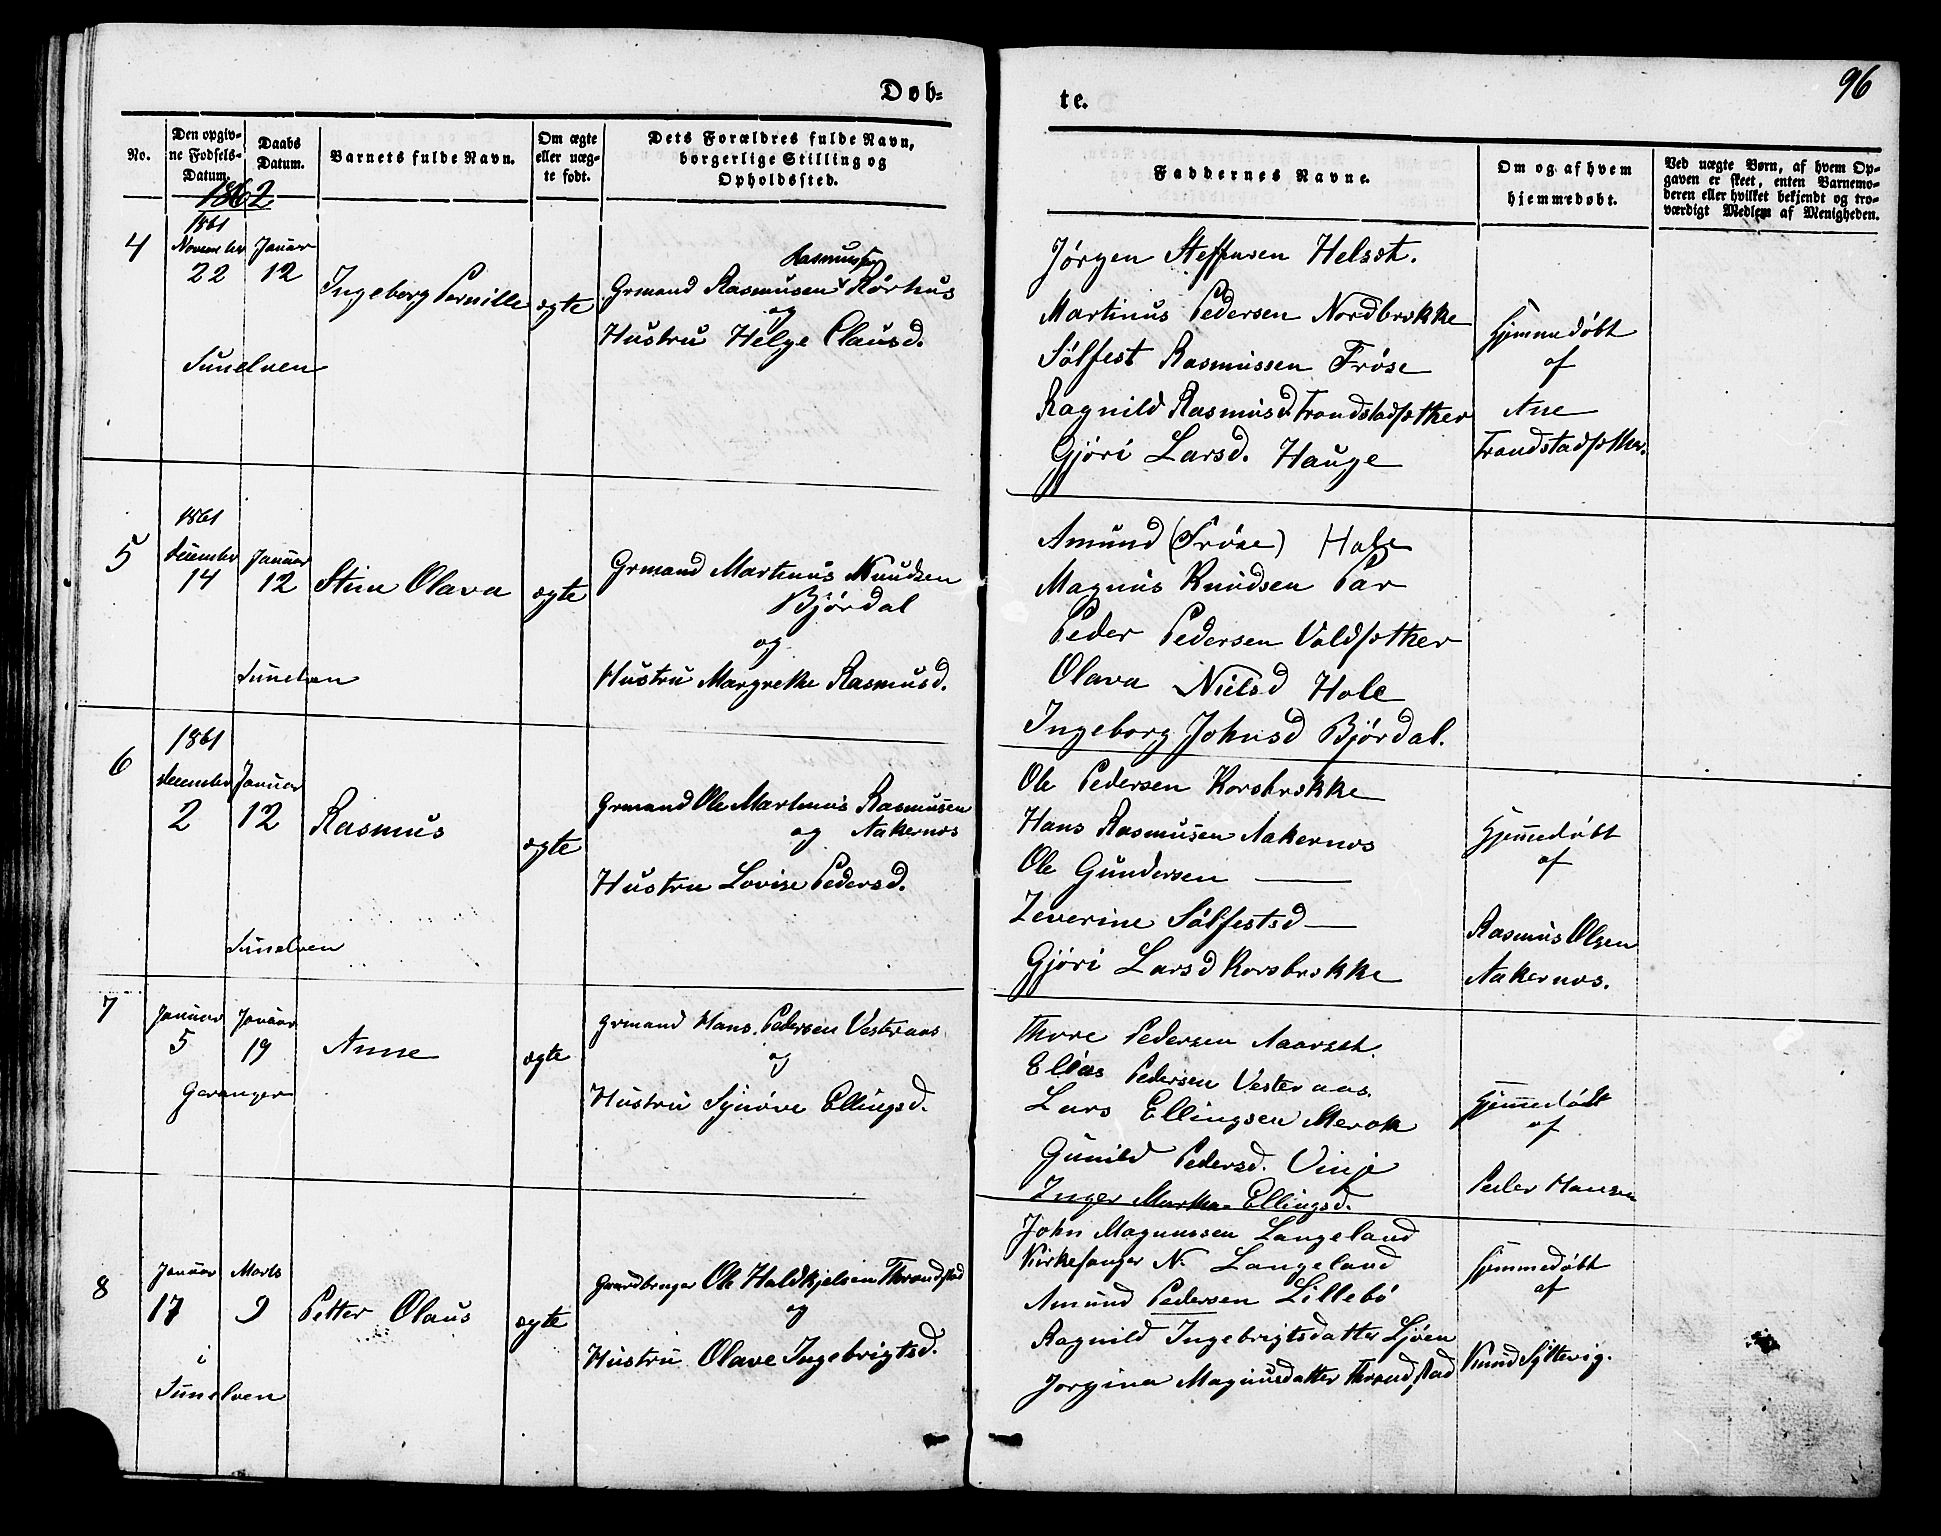 Døb-
No.
Den opgiv-
ne Fødsels-
Datum.
Daabs
Datum.
Barnets fulde Navn.
Om ægte
eller uæg-
te født.
Dets Forældres fulde Navn,
borgerlige Stilling og
Opholdssted.
1862
4
1861
November
22
Januar
12
Ingeborg Pernille
ægte
Rasmussen
Grmand Rasmusen Rørhus
og
Hustru Helge Clausd.
Sunelven
5
1861
December
14
Januar
12
Stine Olava
ægte
Grmand Martinus Knudsen
Bjørdal
og
Hustru Margrethe Rasmusd.
Sunelven
6
1861
December
2
Januar
12
Rasmus
ægte
Grmand Ole Martinus Rasmusen
og Aakernæs
Hustru Lovise Pedersd.
Sunelven
7
Januar
5
Januar
19
Anne
ægte
Grmand Hans Pedersen Vesteraas
og
Hustru Synøve Ellingsd.
Geranger
8
Januar
17
Marts
9
Petter Olaus
ægte
Gaardbruger Ole Haldkjelsen Thrandstad
og
Hustru Olave Ingebrigtsd.
i
Sunelven
te.
96
Faddernes Navne.
Om og af hvem
hjemmedøbt.
Ved uægte Børn, af hvem Op-
gaven er skeet, enten Barnemo-
deren eller hvilket bekjendt og tro-
værdigt Medlem af Menigheden.
Jørgen Steffensen Helset.
Martinus Pedersen Nordbrekke
Sølfest Rasmussen Frøse
Ragnild Rasmusd. Trandstadsæther
Gjøri Larsd. Hauge
Hjemmedøbt
af
Ane
Trandstadsæther.
Amund (Frøse) Hole
Magnus Knudsen Par
Peder Pedersen Voldsæther
Olava Nielsd Hole
Ingeborg Johnsd Bjørdal.
Ole Pedersen Korsbrekke
Hans Rasmusen Aakernæs
Ole Gundersen —
Zeverine Sølfestsd —
Gjøri Larsd Korsbrekke
Hjemmedøbt
af
Rasmus Olsen
Aakernæs.
Thore Pedersen Aarset.
Elias Pedersen Vesteraas.
Lars Ellingsen Merok
Gunild Pedersd. Vinje
Inger Marthe Ellingsd.
Hjemmedøbt
af
Peder Hansen
John Magnussen Langeland
Kirkesanger N. Langeland
Amund Pedersen Lillebø
Ragnild Ingebrigtsdatter Ljøen
Jorgina Magnusdatter Thrandstad
Hjemmedøbt
af
Knud Syltevig.